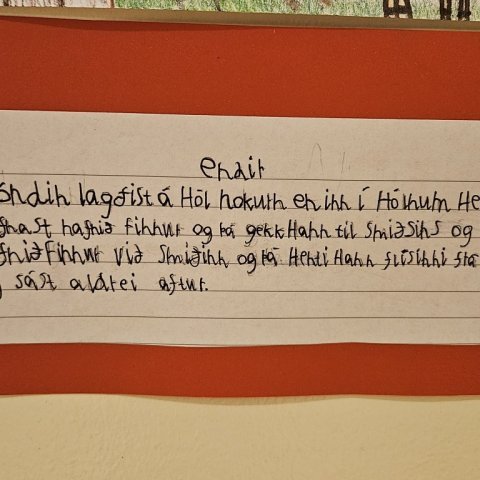 endir
óndin lagðist á Hól nokurn en inn í Hólnum He
gnast nafnið finnur og þá gekk Hann til smiðsins og
fnið Finnur við smiðinn og þá Henti Hann flísinni frá
sást aldrei aftur.